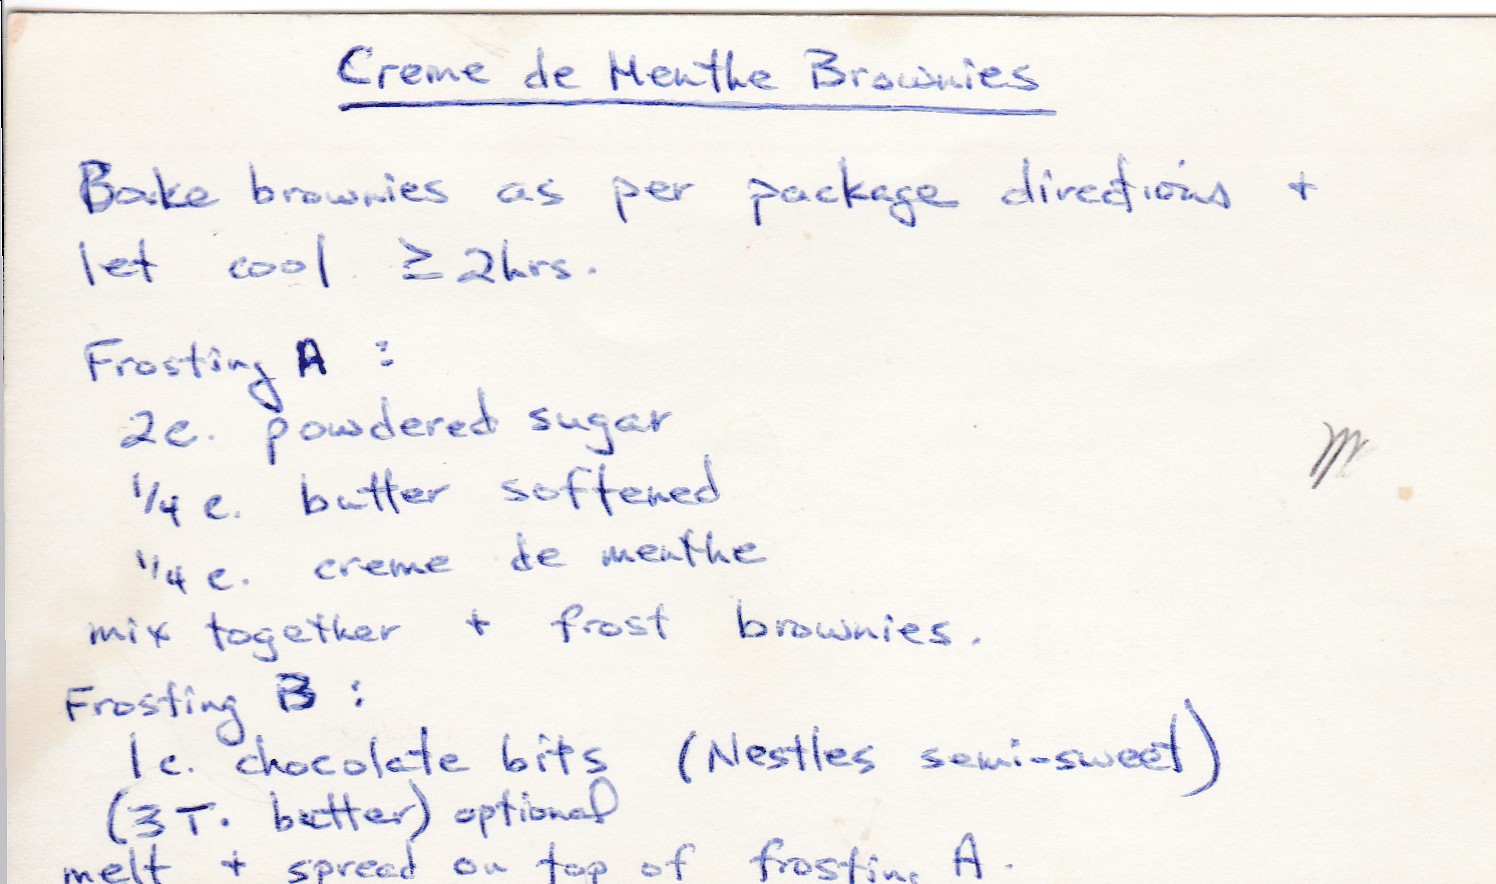 Creme de Menthe Brownies
Bake brownies as per package directions +
let cool ≥ 2hrs.
Frosting A :
2c. powdered sugar
1/4 c. butter softened
1/4 c. creme de menthe
mix together + frost brownies.
Frosting B :
1c. chocolate bits (Nestles semi-sweet)
(3 T. butter) optional
melt + spread on top of frosting A.